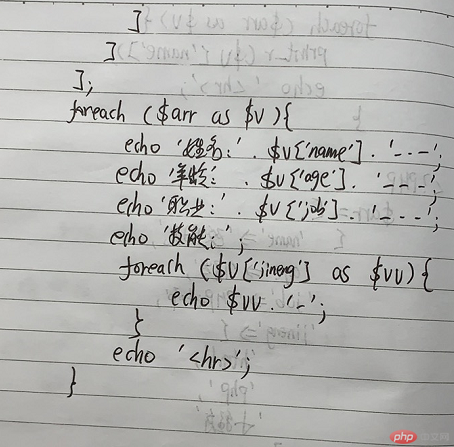 ]
]
];
foreach ($arr as $v){
echo '姓名:' . $v['name'] . '---';
echo '年龄:' . $v['age'] . '---';
echo '职业:' . $v['job'] . '---';
echo '技能:';
foreach ($v['jineng'] as $vv){
echo $vv . '-';
}
echo '<hr>';
}
php